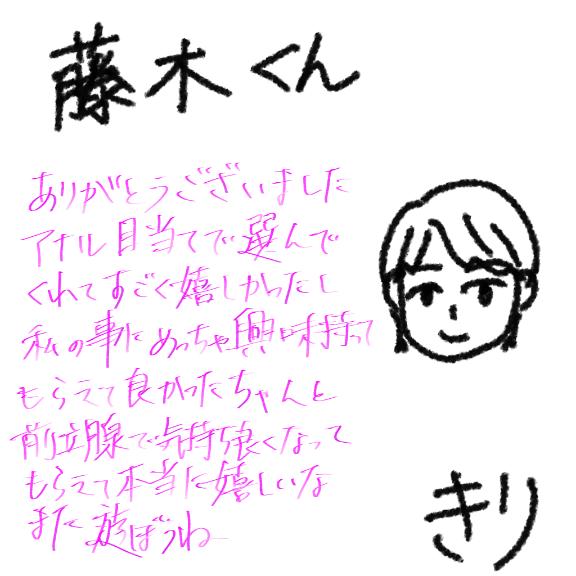 藤木くん
ありがとうございました
アナル目当てで選んで
くれてすごく嬉しかったし
私の事にめっちゃ興味持って
もらえて良かったちゃんと
前立腺で気持ち良くなって
もらえて本当に嬉しいな
また遊ぼうね
きり